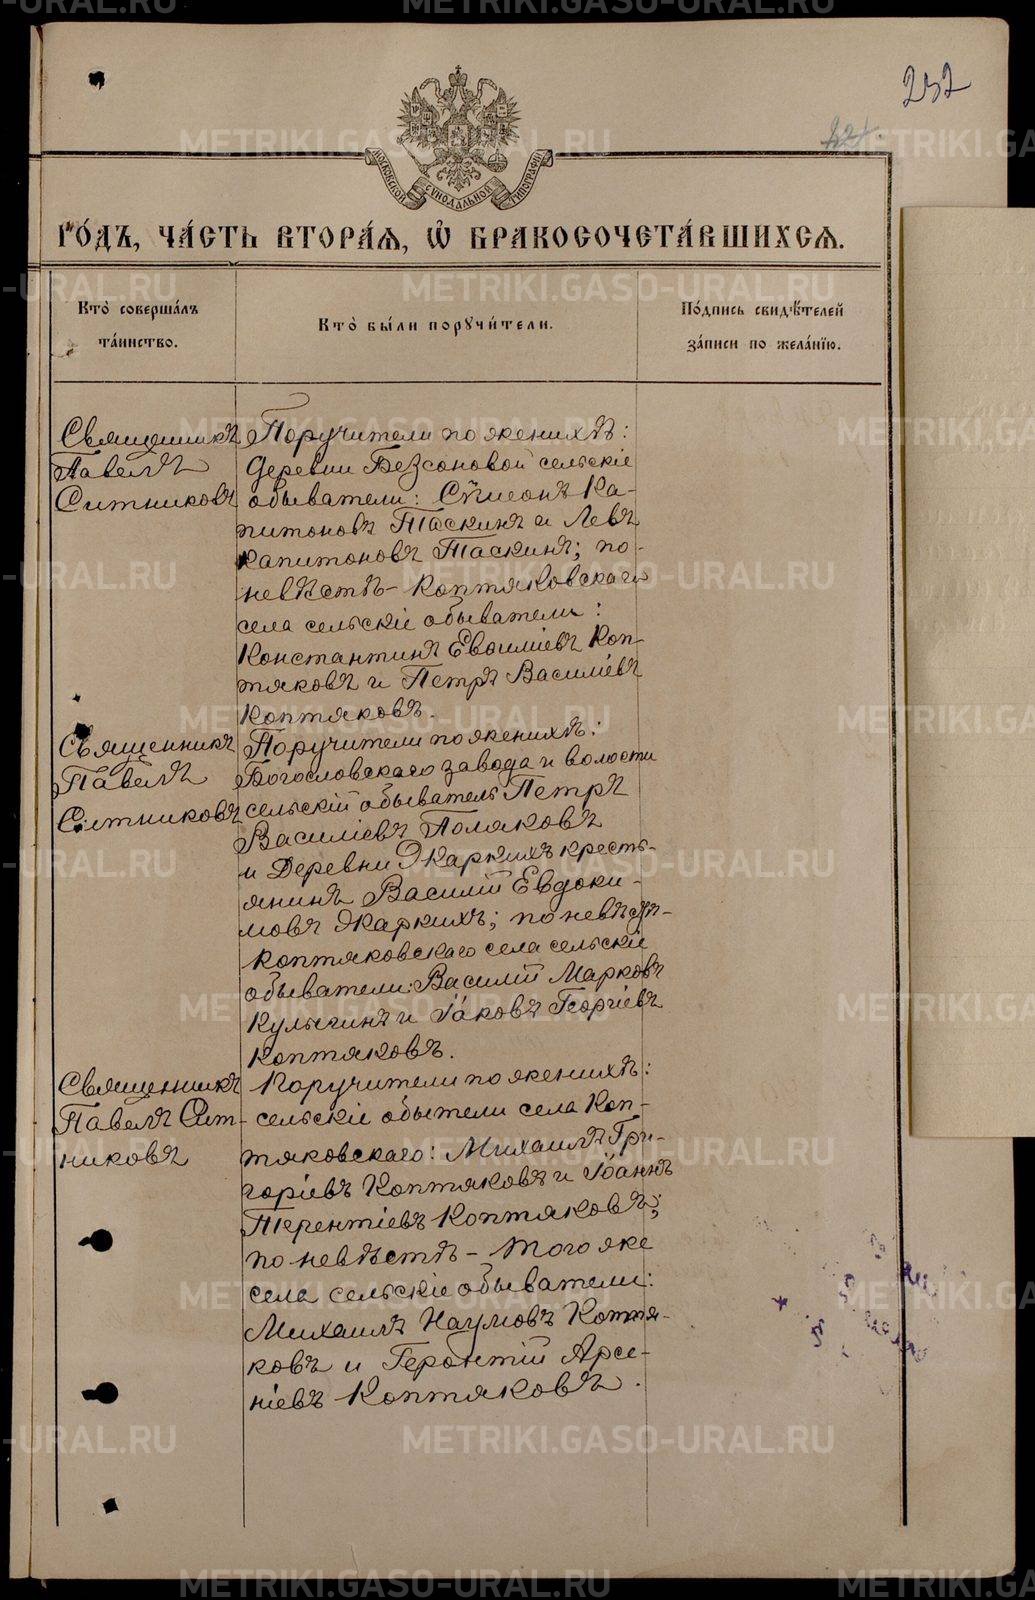 252
МОСКОВСКОЙ СѴНОДАЛЬНОЙ ТИПОГРАФІИ
ГО́ДЪ, ЧА́СТЬ ВТОРА́Ѧ, Ѡ҆ БРАКОСОЧЕТА́ВШИХСѦ.
Кто̀ соверша́лъ
та́инство.
Кто̀ бы́ли порꙋчи́тели.
По́дпись свидѣ́телей
за́писи по жела́нїю.
Священникъ
Павелъ
Ситниковъ
Поручители по женихѣ:
деревни Безсоновой сельскіе
обыватели: Сѵмеонъ Ка-
питоновъ Таскинъ и Левъ
Капитоновъ Таскинъ; по
невѣстѣ - Коптяковскаго
села сельскіе обыватели:
Константинъ Евѳиміевъ Коп-
тяковъ и Петръ Василіевъ
Коптяковъ.
Священникъ
Павелъ
Ситниковъ
Поручители по женихѣ:
Богословскаго завода и волости
сельскій обыватель Петръ
Василіевъ Поляковъ
и деревни Жаркихъ кресть-
янинъ Василій Евдоки-
мовъ Жаркихъ; по невѣстѣ-
Коптяковскаго села сельскіе
обыватели: Василій Марковъ
Кулыгинъ и Іаковъ Георгіевъ
Коптяковъ.
Священникъ
Павелъ Сит-
никовъ
Поручители по женихѣ:
сельскіе обытели села Коп-
тяковскаго: Михаилъ Гри-
горіевъ Коптяковъ и Іоаннъ
Терентіевъ Коптяковъ;
по невѣстѣ - того же
села сельскіе обыватели:
Михаилъ Наумовъ Коптя-
ковъ и Геронтій Арсе-
ніевъ Коптяковъ.
METRIKI.GASO-URAL.RU